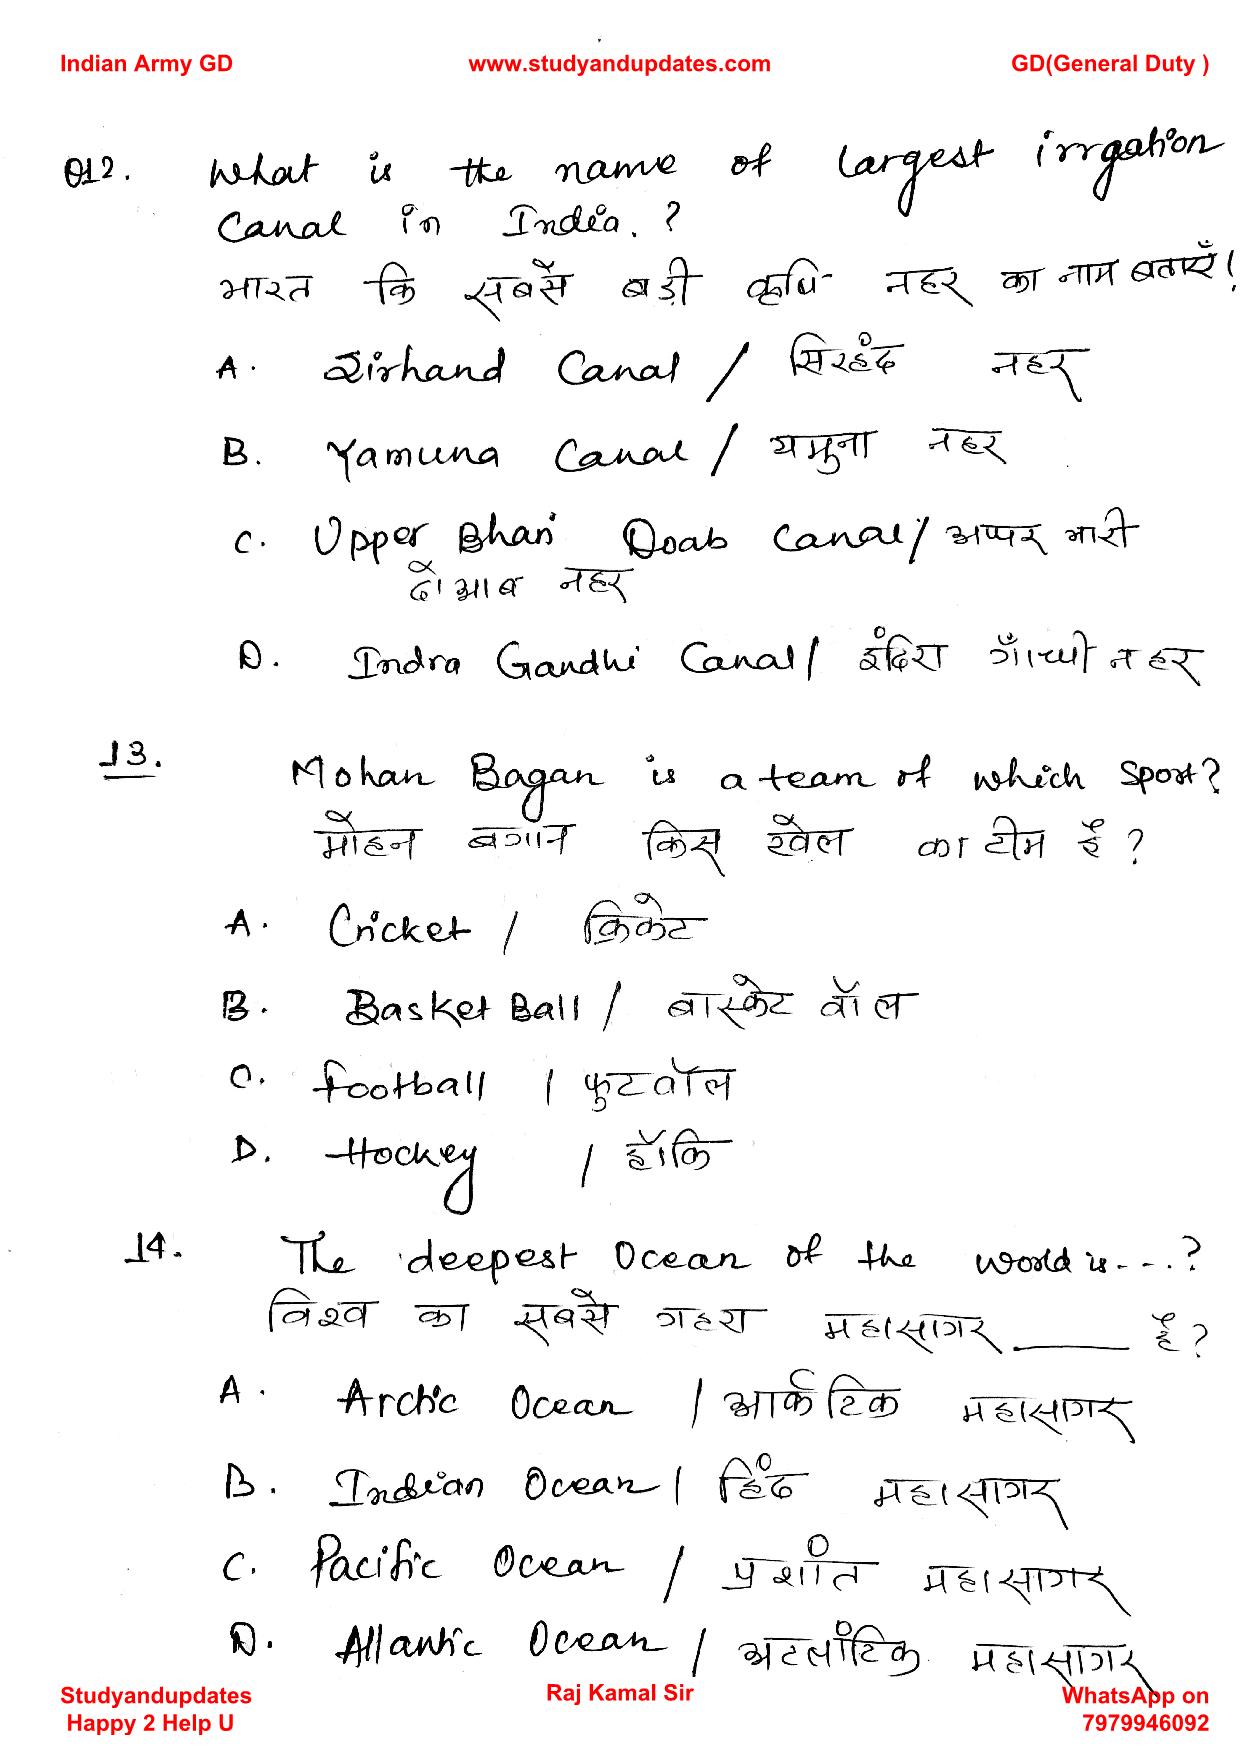 Indian Army GD www.studyandupdates.com GD(General Duty )
Q12. What is the name of largest irrgation
Canal in India. ?
भारत कि सबसे बड़ी कृषि नहर का नाम बताएँ।
A. Sirhand Canal / सिरहंद नहर
B. Yamuna Canal / यमुना नहर
C. Upper Bhari Doab Canal / अप्पर भारी
दोआब नहर
D. Indra Gandhi Canal / इंदिरा गाँधी नहर
13. Mohan Bagan is a team of which sport?
मोहन बगान किस खेल का टीम है ?
A. Cricket / क्रिकेट
B. Basket Ball / बास्केट वॉल
C. football / फुटवॉल
D. Hockey / हॉकि
14. The deepest Ocean of the world is---.?
विश्व का सबसे गहरा महासागर ____ है ?
A. Arctic Ocean / आर्कटिक महासागर
B. Indian Ocean / हिंद महासागर
C. Pacific Ocean / प्रशांत महासागर
D. Atlantic Ocean / अटलांटिक महासागर
Studyandupdates Raj Kamal Sir WhatsApp on
Happy 2 Help U 7979946092